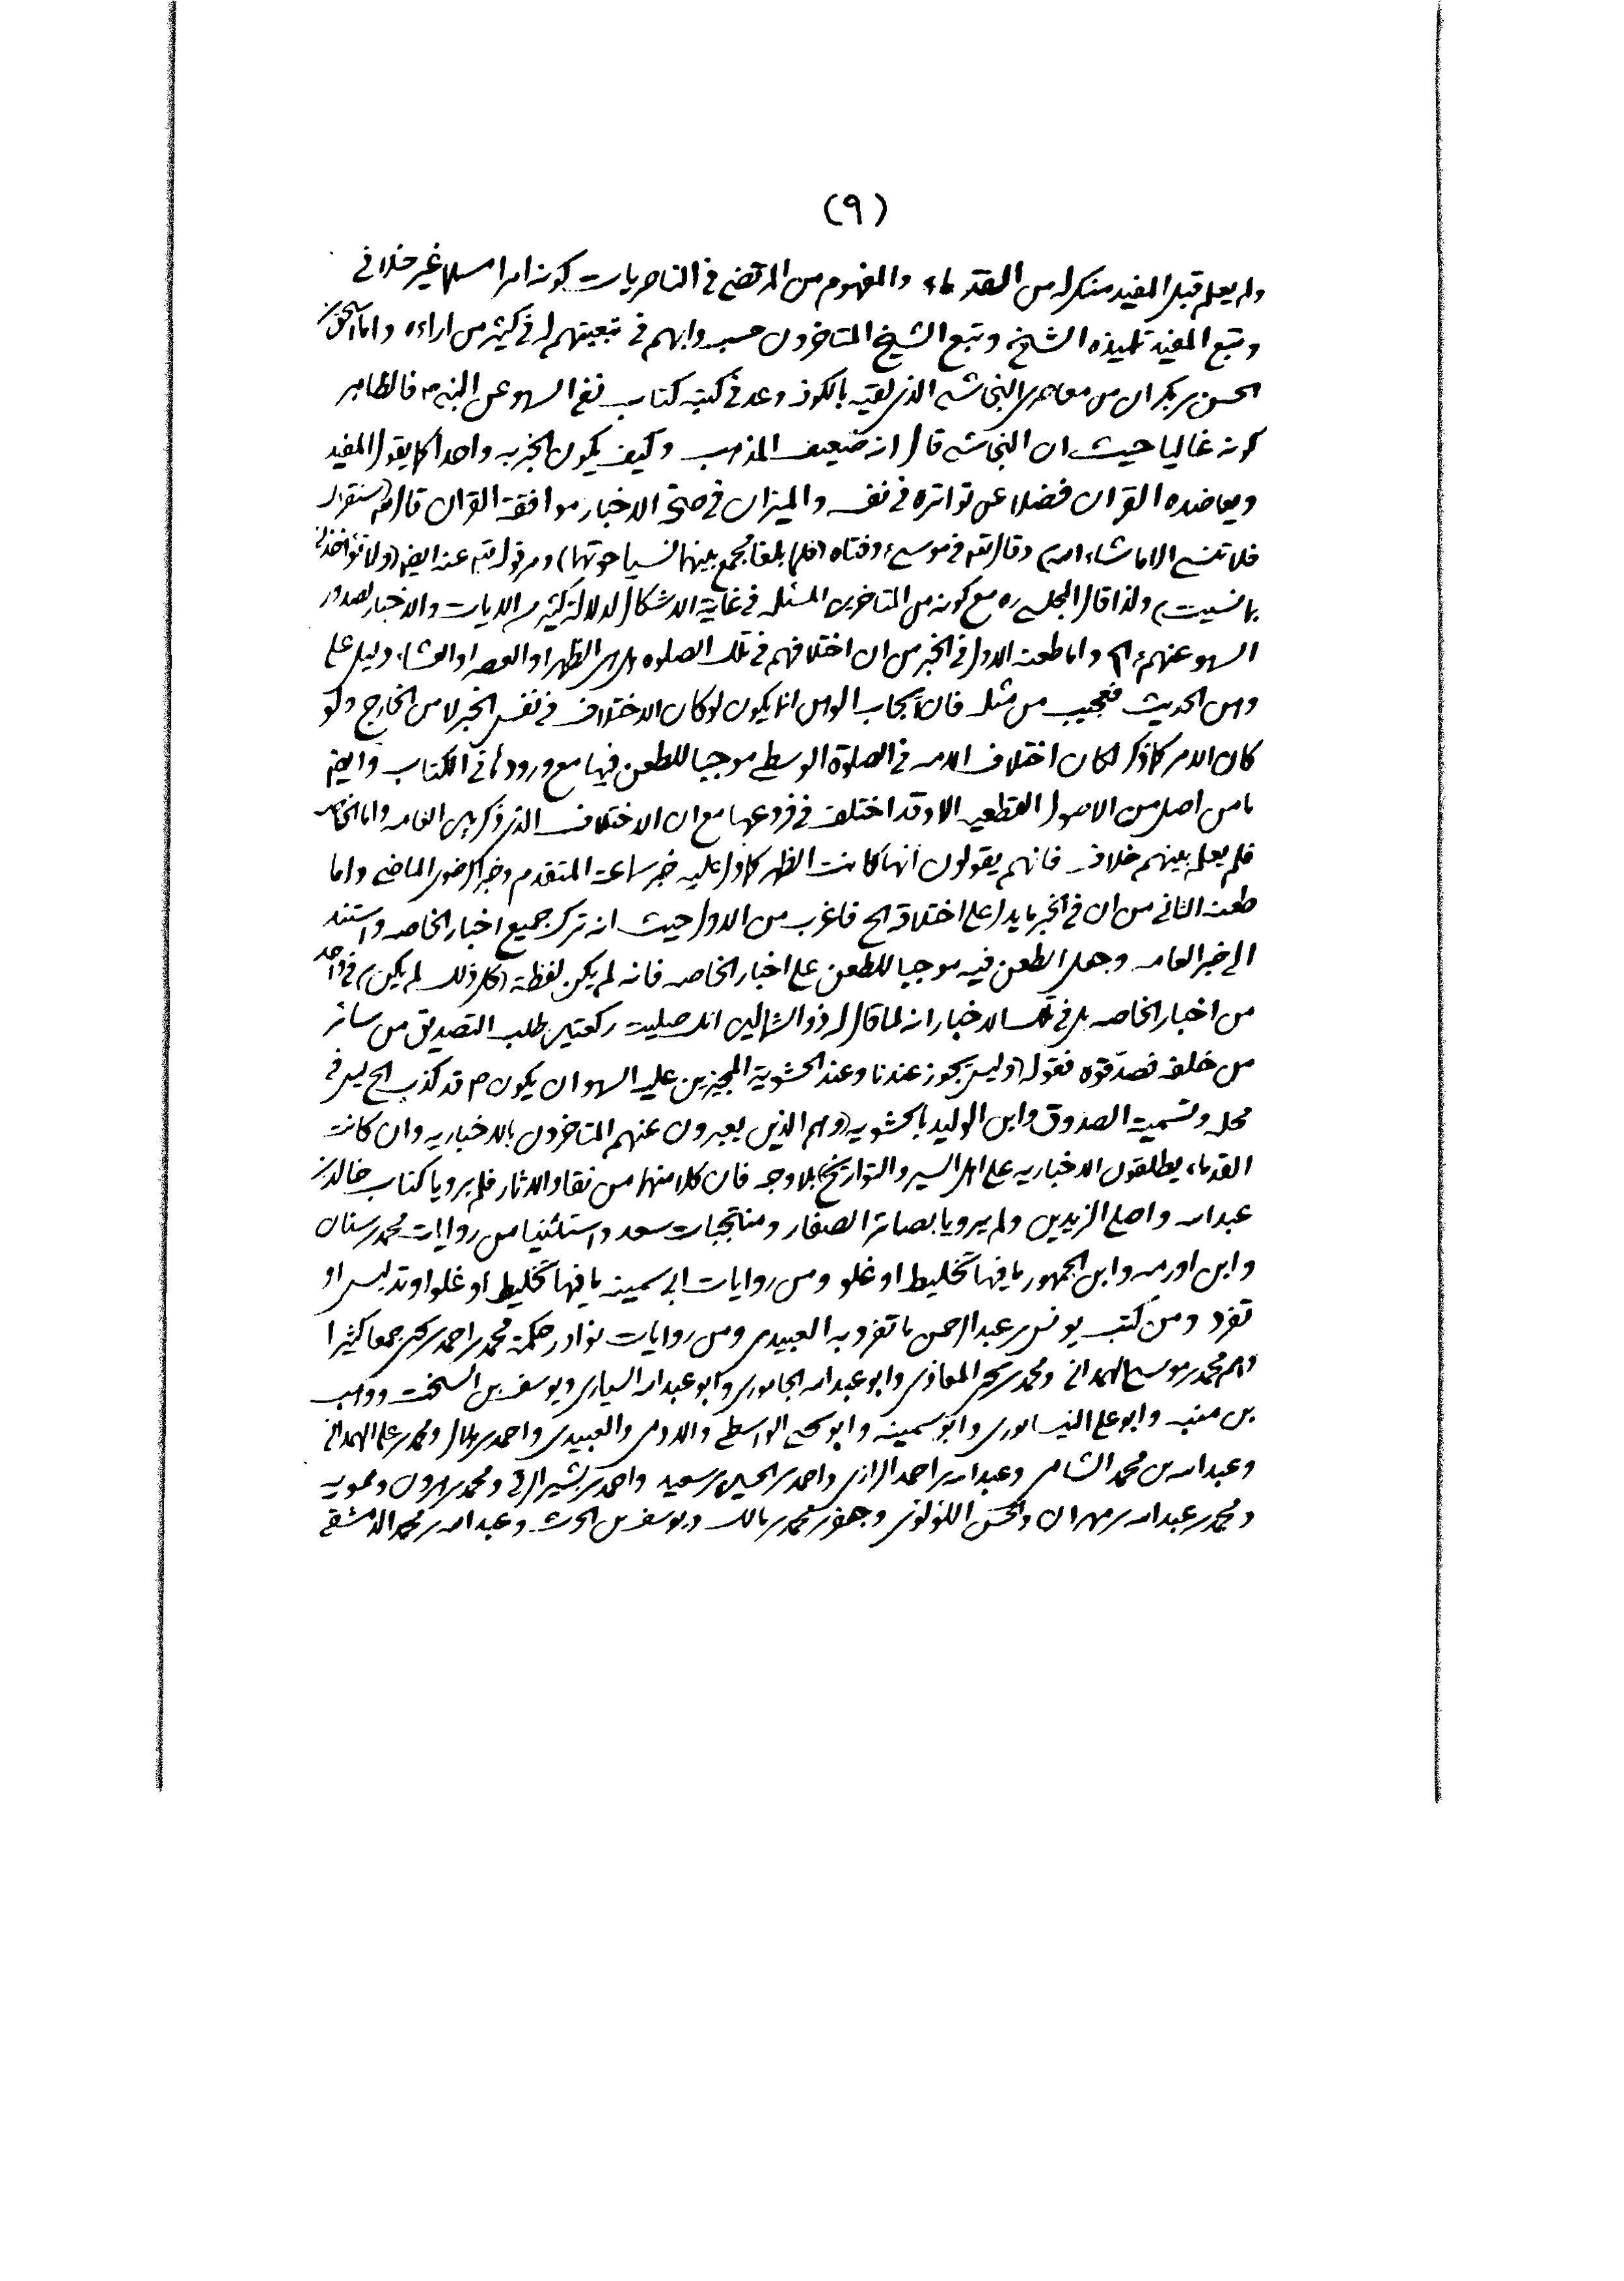 (٩)
ولم يعلم قبل المفيد منكر له من القدماء والمفهوم من المرتضى في الناصريات كونه امرا مسلما غير خلافى
وتبع المفيد تلميذه الشيخ وتبع الشيخ المتاخرون حسب دابهم فى تبعيتهم له فى كثير من اراءه واما اسحق بن
الحسن بن بكران من معاصرى النجاشى الذى لقيه بالكوفة وعد فى كتبه كتاب نفى السهو عن النبى ص فالظاهر
كونه غاليا حيث ان النجاشى قال انه ضعيف المذهب وكيف يكون الخبر به واحدا كما يقول المفيد
ويعاضده القران فضلا عن تواتره فى نفسه والميزان فى صحة الاخبار موافقة القران قال تعالى (سنقرئك
فلا تنسى الا ما شاء الله) وقال تعالى فى موسى ع وفتاه (فلما بلغا مجمع بينهما نسيا حوتهما) ومر قوله تعالى عنه ايضا (ولا تؤاخذنى
بما نسيت) ولذا قال المجلسى ره مع كونه من المتاخرين المسئلة فى غاية الاشكال لدلالة كثير من الايات والاخبار لصدور
السهو عنهم ع الخ واما طعنه الاول فى الخبر من ان اختلافهم فى تلك الصلوه هل هى الظهر او العصر او العشاء دليل على
وهن الحديث فعجيب من مثله فان ايجاب الوهن انما يكون لو كان الاختلاف فى نفس الخبر لا من الخارج ولو
كان الامر كما ذكر لكان اختلاف الامه فى الصلوة الوسطى موجبا للطعن فيها مع ورودها فى الكتاب وايضا
ما من اصل من الاصول القطعيه الا وقد اختلف فى فروعها مع ان الاختلاف الذى ذكر بين العامه واما الخاصه
فلم يعلم بينهم خلاف فانهم يقولون انها كانت الظهر كما دل عليه خبر سماعة المتقدم وخبر الحضرمى الماضى واما
طعنه الثانى من ان فى الخبر ما يدل على اختلاقه الخ فاغرب من الاول حيث انه ترك جميع اخبار الخاصه واستند
الى خبر العامه وجعل الطعن فيه موجبا للطعن على اخبار الخاصه فانه لم يكن لفظة (كل ذلك لم يكن) فى واحد
من اخبار الخاصه بل فى تلك الاخبار انه لما قال له ذو الشمالين انك صليت ركعتين طلب التصديق من سائر
من خلفه فصدّقوه فقوله (وليس يجوز عندنا وعند الحشوية المجيزين عليه السهو ان يكون ص قد كذب الخ ليس فى
محله وتسمية الصدوق وابن الوليد بالحشويه (وهم الذين يعبرون عنهم المتاخرون بالاخباريه وان كانت
القدماء يطلقون الاخباريه على اهل السير والتواريخ) بلا وجه فان كلا منهما من نقاد الاثار فلم يرويا كتاب خالد بن
عبدالله واصلى الزيدين ولم يرويا بصائر الصفار ومنتخبات سعد واستثنيا من روايات محمد بن سنان
وابن اورمه وابن الجمهور ما فيها تخليط او غلو ومن روايات ابى سمينه ما فيها تخليط او غلو او تدليس او
تفرد ومن كتب يونس بن عبدالرحمن ما تفرد به العبيدى ومن روايات نوادر حكمة محمد بن احمد بن يحيى جمعا كثيرا
وهم محمد بن موسى الهمدانى ومحمد بن يحيى المعاذى وابو عبدالله الجامورى وابو عبدالله السيارى ويوسف بن السخت ووهب
بن منبه وابو على النيسابورى وابو سمينه وابو يحيى الواسطى والادمى والعبيدى واحمد بن هلال ومحمد بن على الهمدانى
وعبدالله بن محمد الشامى وعبدالله بن احمد الرازى واحمد بن الحسين بن سعيد واحمد بن بشير الرقى ومحمد بن هرون وممويه
ومحمد بن عبدالله بن مهران والحسن اللؤلؤى وجعفر بن محمد بن مالك ويوسف بن الحرث وعبدالله بن محمد الدمشقى